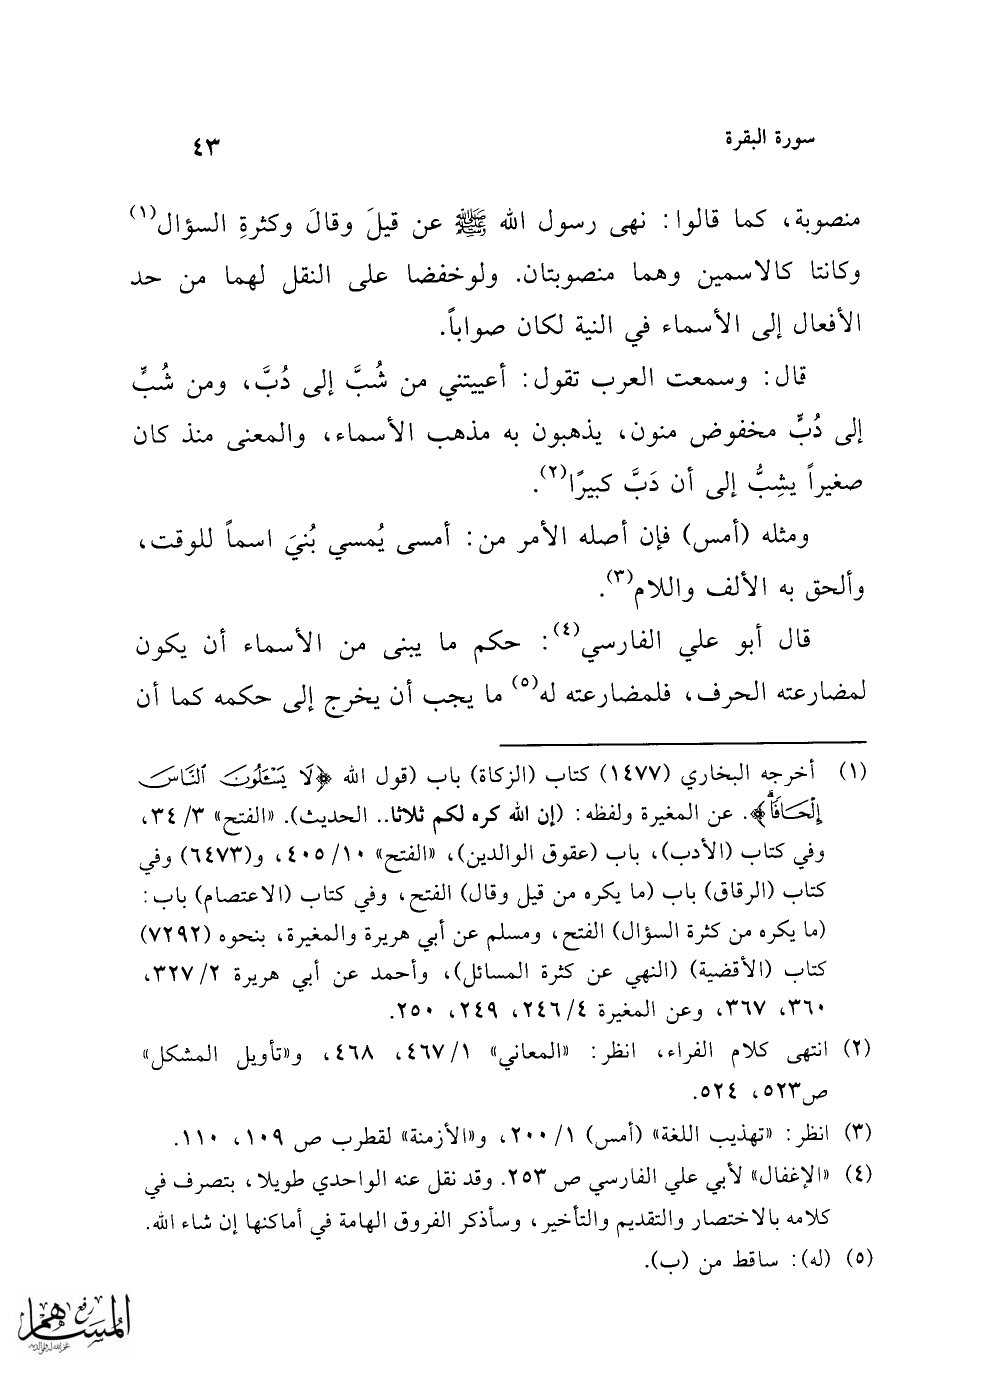 سورة البقرة ٤٣
منصوبة، كما قالوا: نهى رسول الله ﷺ عن قيلَ وقالَ وكثرةِ السؤال(١)
وكانتا كالاسمين وهما منصوبتان. ولوخفضا على النقل لهما من حد
الأفعال إلى الأسماء في النية لكان صواباً.
قال: وسمعت العرب تقول: أعييتني من شُبَّ إلى دُبَّ، ومن شُبٍّ
إلى دُبٍّ مخفوض منون، يذهبون به مذهب الأسماء، والمعنى منذ كان
صغيراً يشِبُّ إلى أن دَبَّ كبيرًا(٢).
ومثله (أمس) فإن أصله الأمر من: أمسى يُمسي بُنيَ اسماً للوقت،
وألحق به الألف واللام(٣).
قال أبو علي الفارسي(٤): حكم ما يبنى من الأسماء أن يكون
لمضارعته الحرف، فلمضارعته له(٥) ما يجب أن يخرج إلى حكمه كما أن
(١) أخرجه البخاري (١٤٧٧) كتاب (الزكاة) باب (قول الله ﴿لَا يَسْـَٔلُونَ ٱلنَّاسَ
إِلْحَافًاۗ﴾. عن المغيرة ولفظه: (إن الله كره لكم ثلاثا.. الحديث). «الفتح» ٣/ ٣٤،
وفي كتاب (الأدب)، باب (عقوق الوالدين)، «الفتح» ١٠/ ٤٠٥، و(٦٤٧٣) وفي
كتاب (الرقاق) باب (ما يكره من قيل وقال) الفتح، وفي كتاب (الاعتصام) باب:
(ما يكره من كثرة السؤال) الفتح، ومسلم عن أبي هريرة والمغيرة، بنحوه (٧٢٩٢)
كتاب (الأقضية) (النهي عن كثرة المسائل)، وأحمد عن أبي هريرة ٢/ ٣٢٧،
٣٦٠، ٣٦٧، وعن المغيرة ٤/ ٢٤٦، ٢٤٩، ٢٥٠.
(٢) انتهى كلام الفراء، انظر: «المعاني» ١/ ٤٦٧، ٤٦٨، و«تأويل المشكل»
ص٥٢٣، ٥٢٤.
(٣) انظر: «تهذيب اللغة» (أمس) ١/ ٢٠٠، و«الأزمنة» لقطرب ص ١٠٩، ١١٠.
(٤) «الإغفال» لأبي علي الفارسي ص ٢٥٣. وقد نقل عنه الواحدي طويلا، بتصرف في
كلامه بالاختصار والتقديم والتأخير، وسأذكر الفروق الهامة في أماكنها إن شاء الله.
(٥) (له): ساقط من (ب).
رفع
المساهم